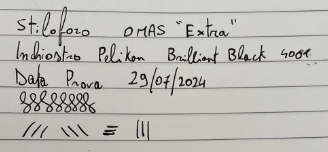 Stiloforo OMAS "Extra"
Inchiostro Pelikan Brilliant Black 4001
Data Prova 29/07/2024
88888888
/// \\\ ≡ |||